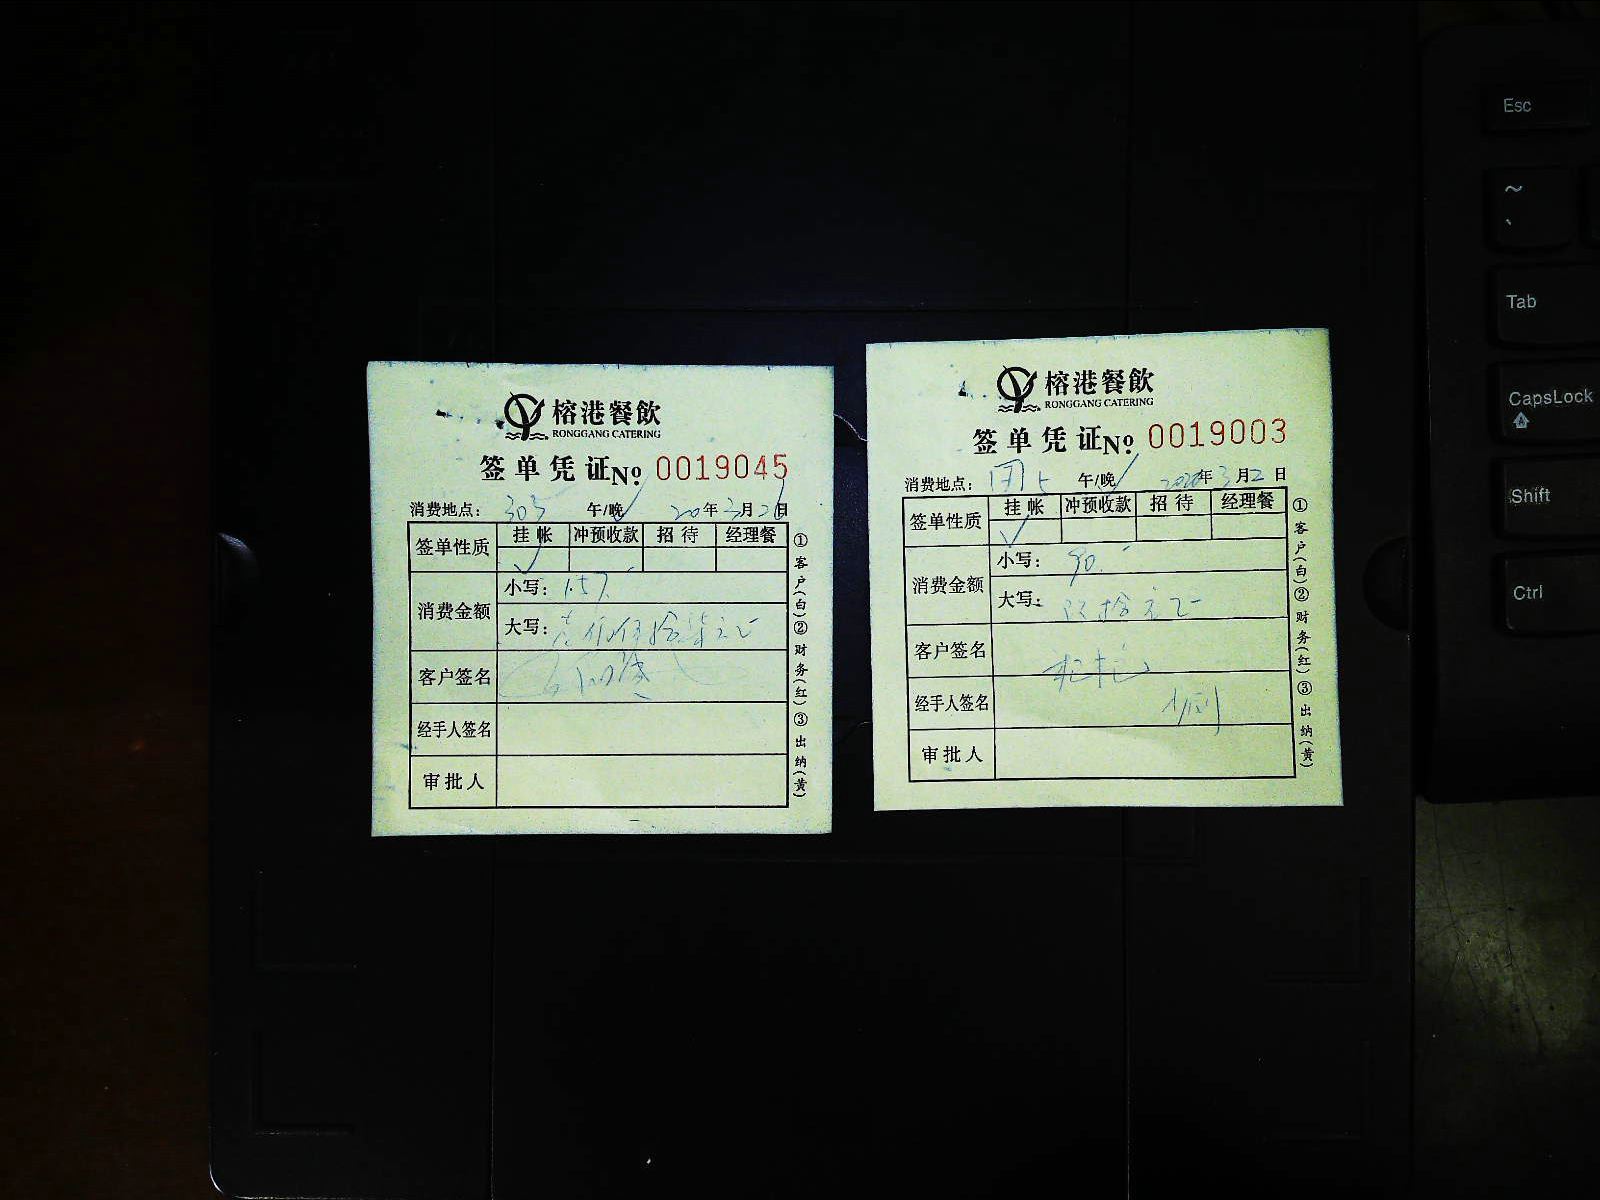 榕港餐飲
RONGGANG CATERING
签单凭证 No. 0019045
消费地点: 303 午/晚 20年3月2日
签单性质 挂帐 冲预收款 招待 经理餐
消费金额 小写: 157.
大写: 壹佰伍拾柒元正
客户签名
经手人签名
审批人
①客户(白)②财务(红)③出纳(黄)
榕港餐飲
RONGGANG CATERING
签单凭证 No. 0019003
消费地点: 午/晚 2020年3月2日
签单性质 挂帐 冲预收款 招待 经理餐
消费金额 小写: 90.
大写: 玖拾元正
客户签名
经手人签名
审批人
①客户(白)②财务(红)③出纳(黄)
Esc
~
`
Tab
CapsLock
Shift
Ctrl